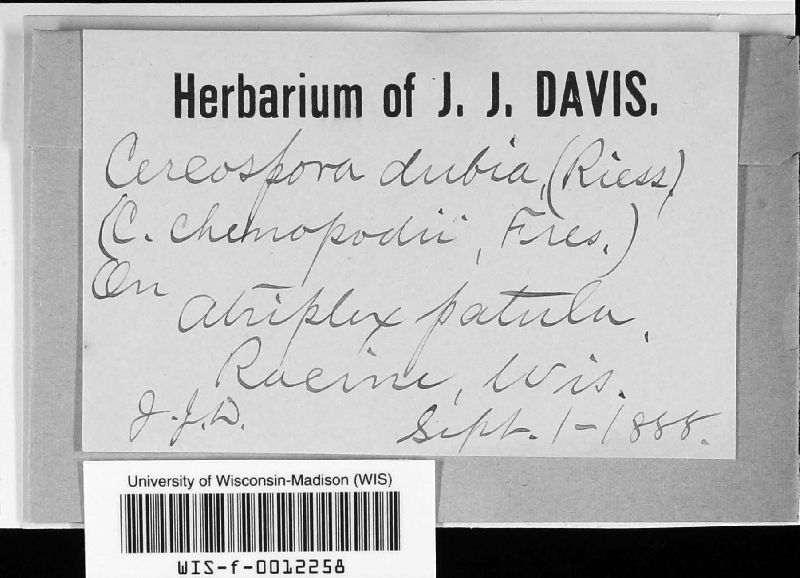 Herbarium of J. J. DAVIS.
Cercospora dubia, (Riess)
(C. chenopodii, Fres.)
On
atriplex patula,
Racine, Wis.
J.J.D. Sept. 1-1888.
University of Wisconsin-Madison (WIS)
WIS-f-0012258